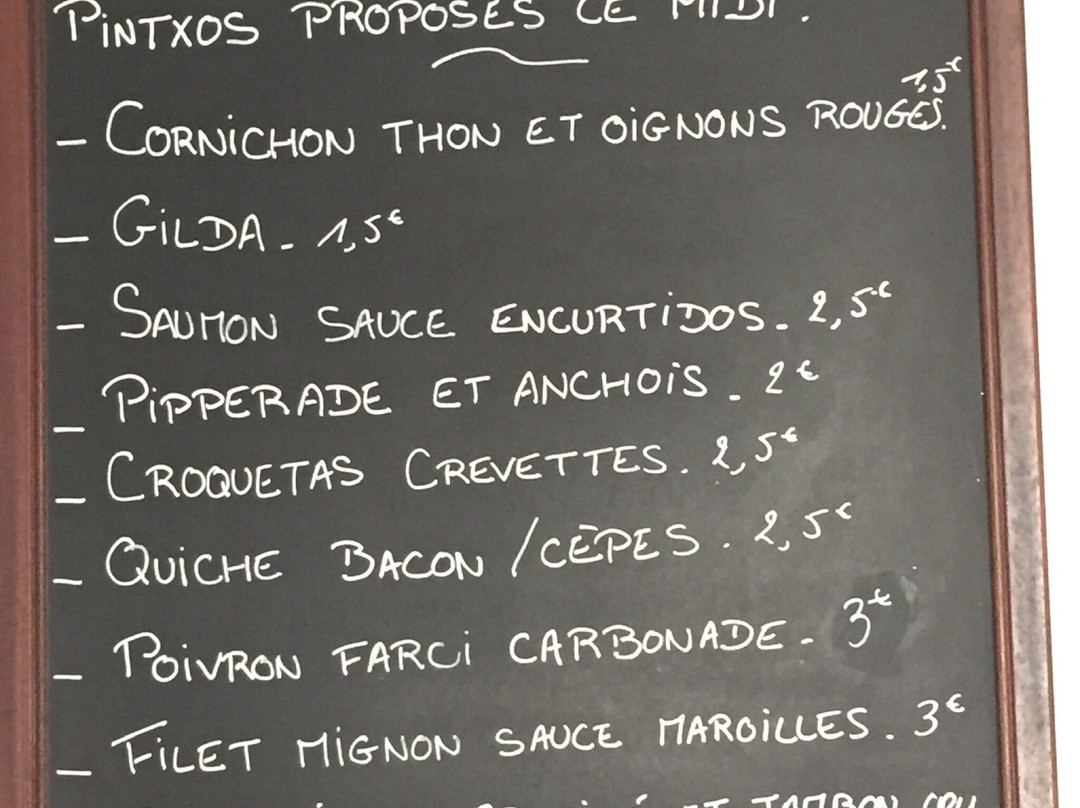 PINTXOS PROPOSÉS CE MIDI.
1,5€
- CORNICHON THON ET OIGNONS ROUGES.
- GILDA - 1,5€
- SAUMON SAUCE ENCURTIDOS - 2,5€
- PIPPERADE ET ANCHOIS - 2€
- CROQUETAS CREVETTES. 2,5€
- QUICHE BACON /CÈPES. 2,5€
- POIVRON FARCI CARBONADE - 3€
- FILET MIGNON SAUCE MAROILLES. 3€
ET JAMBON CRU